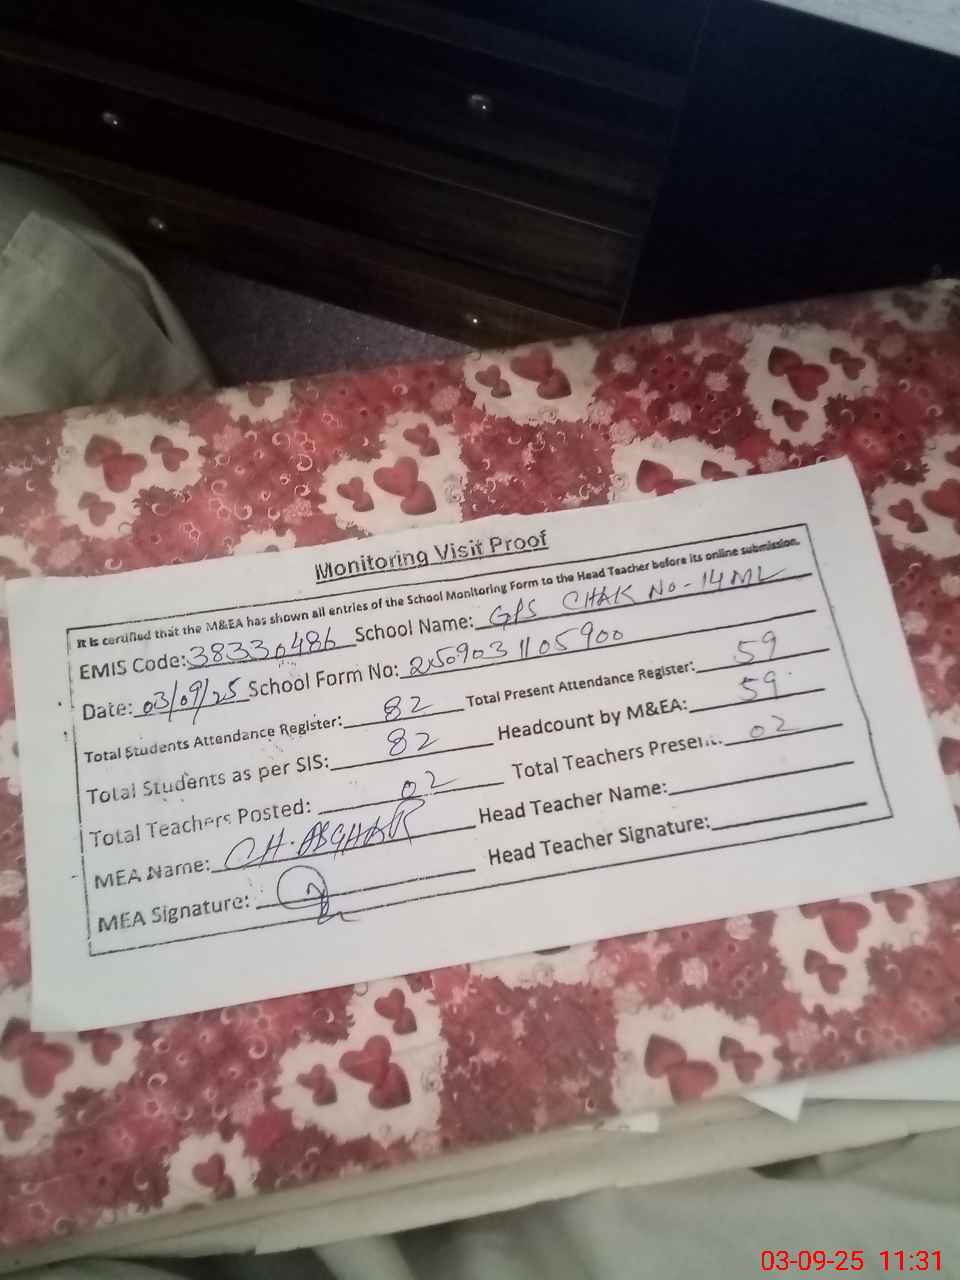 Monitoring Visit Proof
It is certified that the M&EA has shown all entries of the School Monitoring Form to the Head Teacher before its online submission.
EMIS Code: 38330486 School Name: GPS CHAK No-14ML
Date: 03/09/25 School Form No: 2509031105900
Total Students Attendance Register: 82 Total Present Attendance Register: 59
Total Students as per SIS: 82 Headcount by M&EA: 59
Total Teachers Posted: 02 Total Teachers Present: 02
MEA Name: CH. ASGHAR Head Teacher Name:
MEA Signature: Head Teacher Signature:
03-09-25 11:31